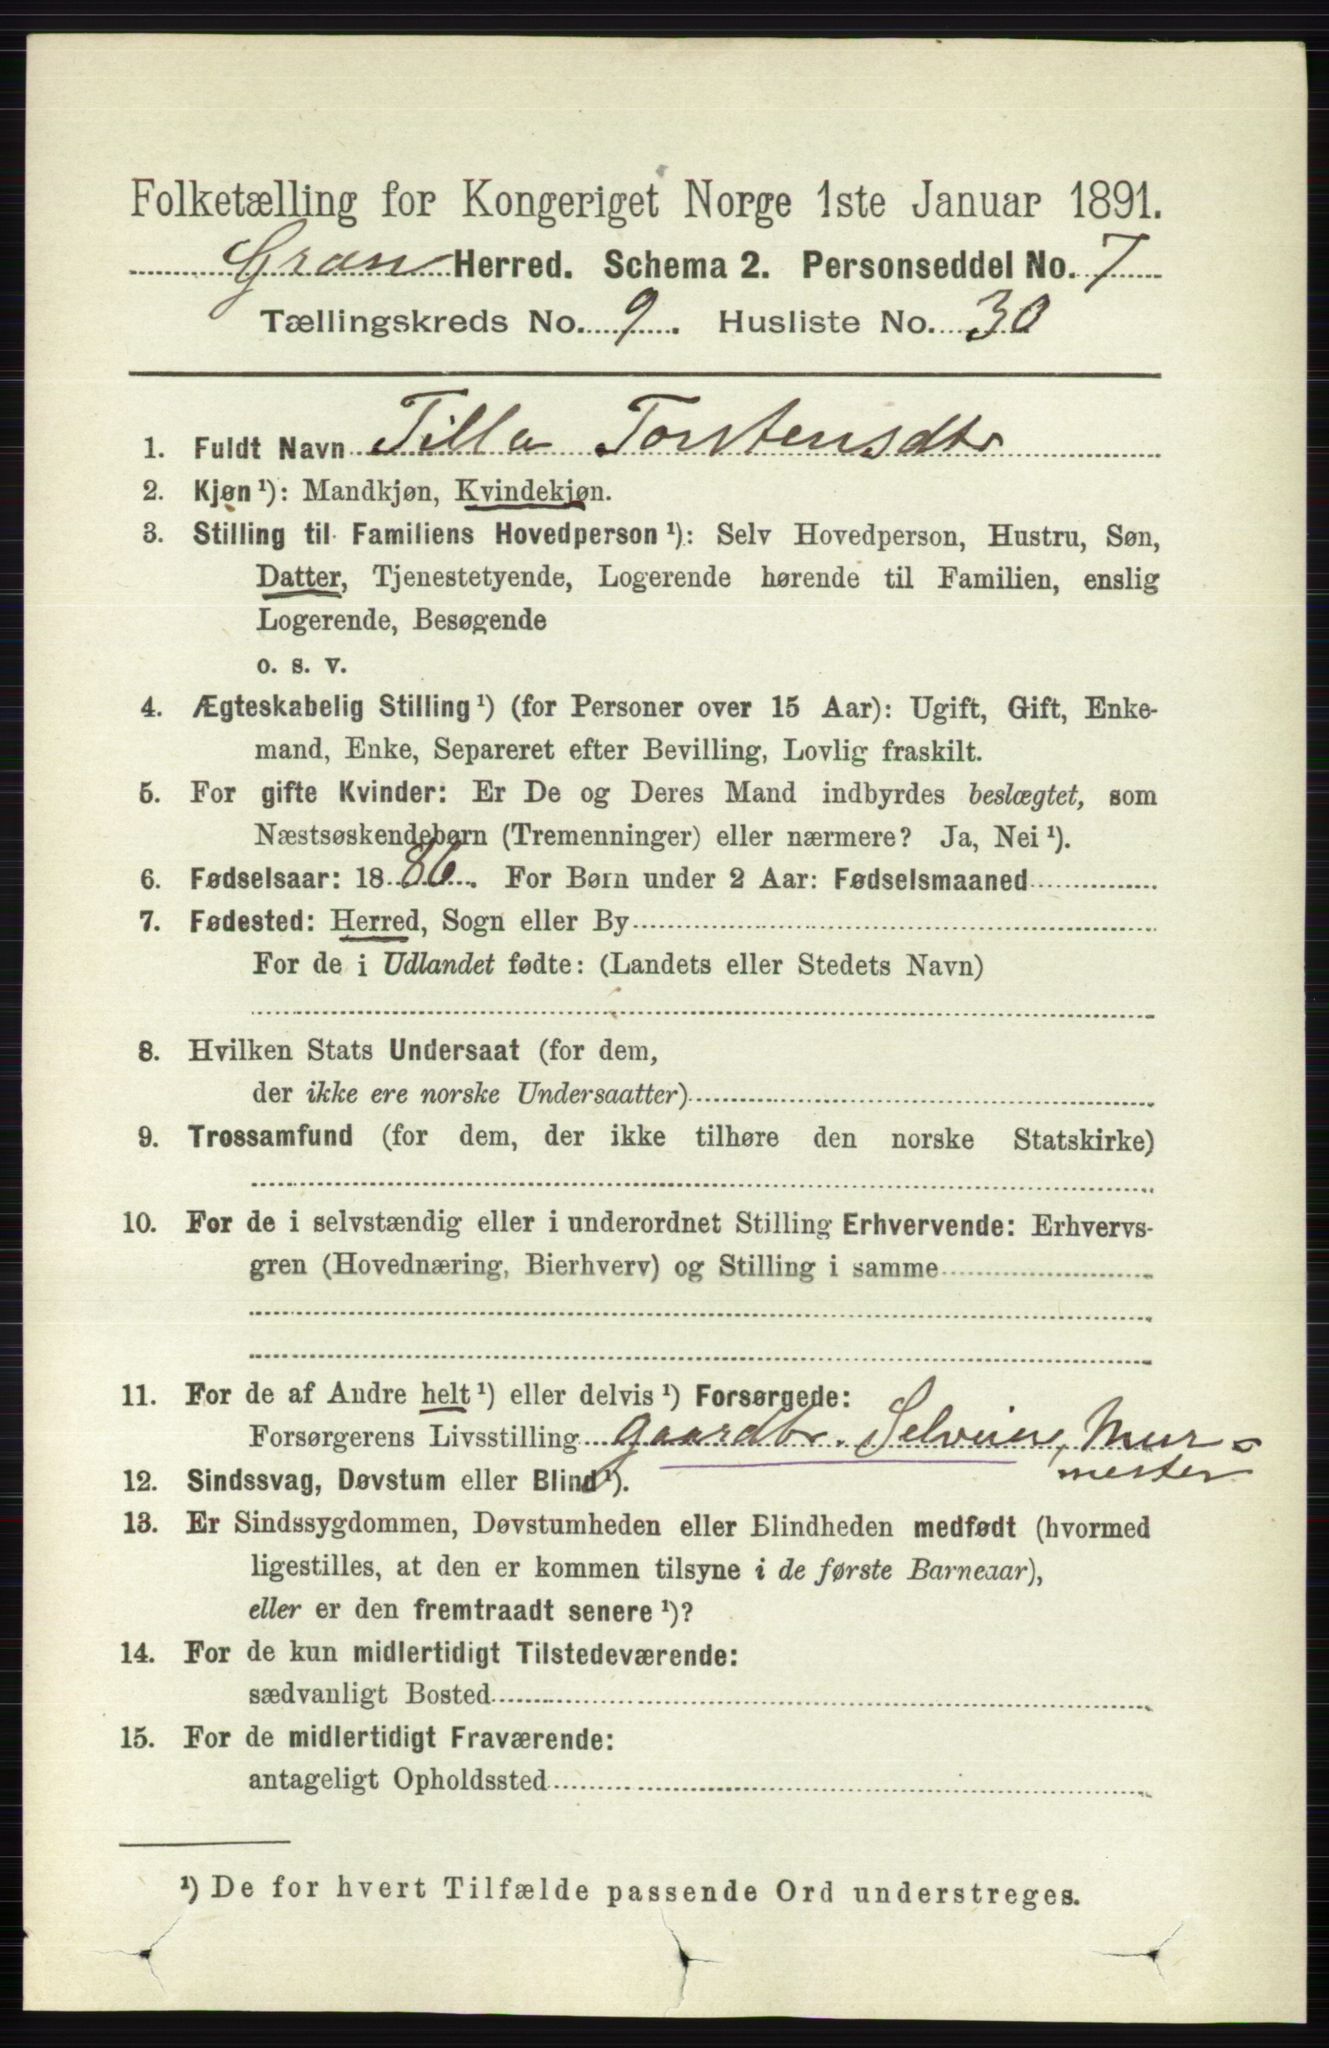 Folketælling for Kongeriget Norge 1ste Januar 1891.
Gran Herred. Schema 2. Personseddel No. 7
Tællingskreds No. 9. Husliste No. 30
1. Fuldt Navn Tilla Torstensdtr
2. Kjøn ¹): Mandkjøn, Kvindekjøn.
3. Stilling til Familiens Hovedperson ¹): Selv Hovedperson, Hustru, Søn,
Datter, Tjenestetyende, Logerende hørende til Familien, enslig
Logerende, Besøgende
o. s. v.
4. Ægteskabelig Stilling ¹) (for Personer over 15 Aar): Ugift, Gift, Enke-
mand, Enke, Separeret efter Bevilling, Lovlig fraskilt.
5. For gifte Kvinder: Er De og Deres Mand indbyrdes beslægtet, som
Næstsøskendebørn (Tremenninger) eller nærmere? Ja, Nei ¹).
6. Fødselsaar: 1886. For Børn under 2 Aar: Fødselsmaaned
7. Fødested: Herred, Sogn eller By
For de i Udlandet fødte: (Landets eller Stedets Navn)
8. Hvilken Stats Undersaat (for dem,
der ikke ere norske Undersaatter)
9. Trossamfund (for dem, der ikke tilhøre den norske Statskirke)
10. For de i selvstændig eller i underordnet Stilling Erhvervende: Erhvervs-
gren (Hovednæring, Bierhverv) og Stilling i samme
11. For de af Andre helt ¹) eller delvis ¹) Forsørgede:
Forsørgerens Livsstilling gaardbr. Selveier, Mur-
mester
12. Sindssvag, Døvstum eller Blind ¹).
13. Er Sindssygdommen, Døvstumheden eller Blindheden medfødt (hvormed
ligestilles, at den er kommen tilsyne i de første Barneaar),
eller er den fremtraadt senere ¹)?
14. For de kun midlertidigt Tilstedeværende:
sædvanligt Bosted
15. For de midlertidigt Fraværende:
antageligt Opholdssted
¹) De for hvert Tilfælde passende Ord understreges.